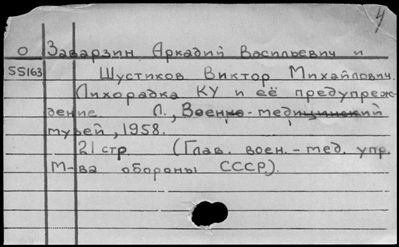 4
О Заварзин Аркадий Васильевич и
55163 Шустиков Виктор Михайлович.
Лихорадка КУ и её предупреж-
дение. Л., Военно-медицинский
музей, 1958.
21 стр. (Глав. воен.-мед. упр.
М-ва обороны СССР).